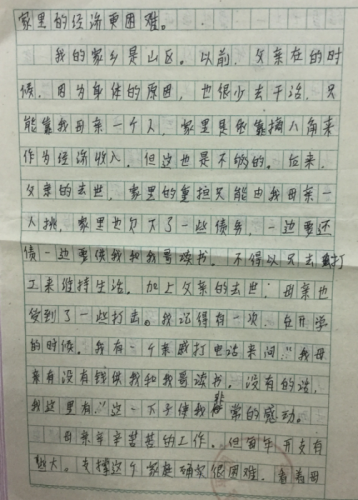 家里的经济更困难。
我的家乡是山区。以前，父亲在的时
候，因为身体的原因，也很少去干活，只
能靠我母亲一个人，家里只能靠摘八角来
作为经济收入，但这也是不够的。后来，
父亲的去世，家里的重担只能由我母亲一
人挑，家里也欠下了一些债务，一边要还
债一边要供我和我哥读书，不得以只去打
工来维持生活。加上父亲的去世，母亲也
受到了一些打击。我记得有一次，在开学
的时候，我有一个亲戚打电话来问："我母
亲有没有钱供我和我哥读书，没有的话，
我这里有"这一下子使我非常的感动。
母亲辛辛苦苦的工作，但每年开支有
越大。支撑这个家庭确实很困难，看着母